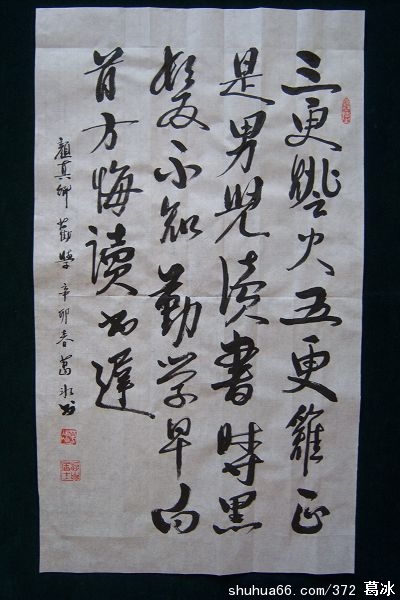 三更燈火五更雞正
是男兒读書時黑
髮不知勤学早白
首方悔讀书遲
顏真卿勸學 辛卯春 葛冰书
shuhua66.com/372 葛冰